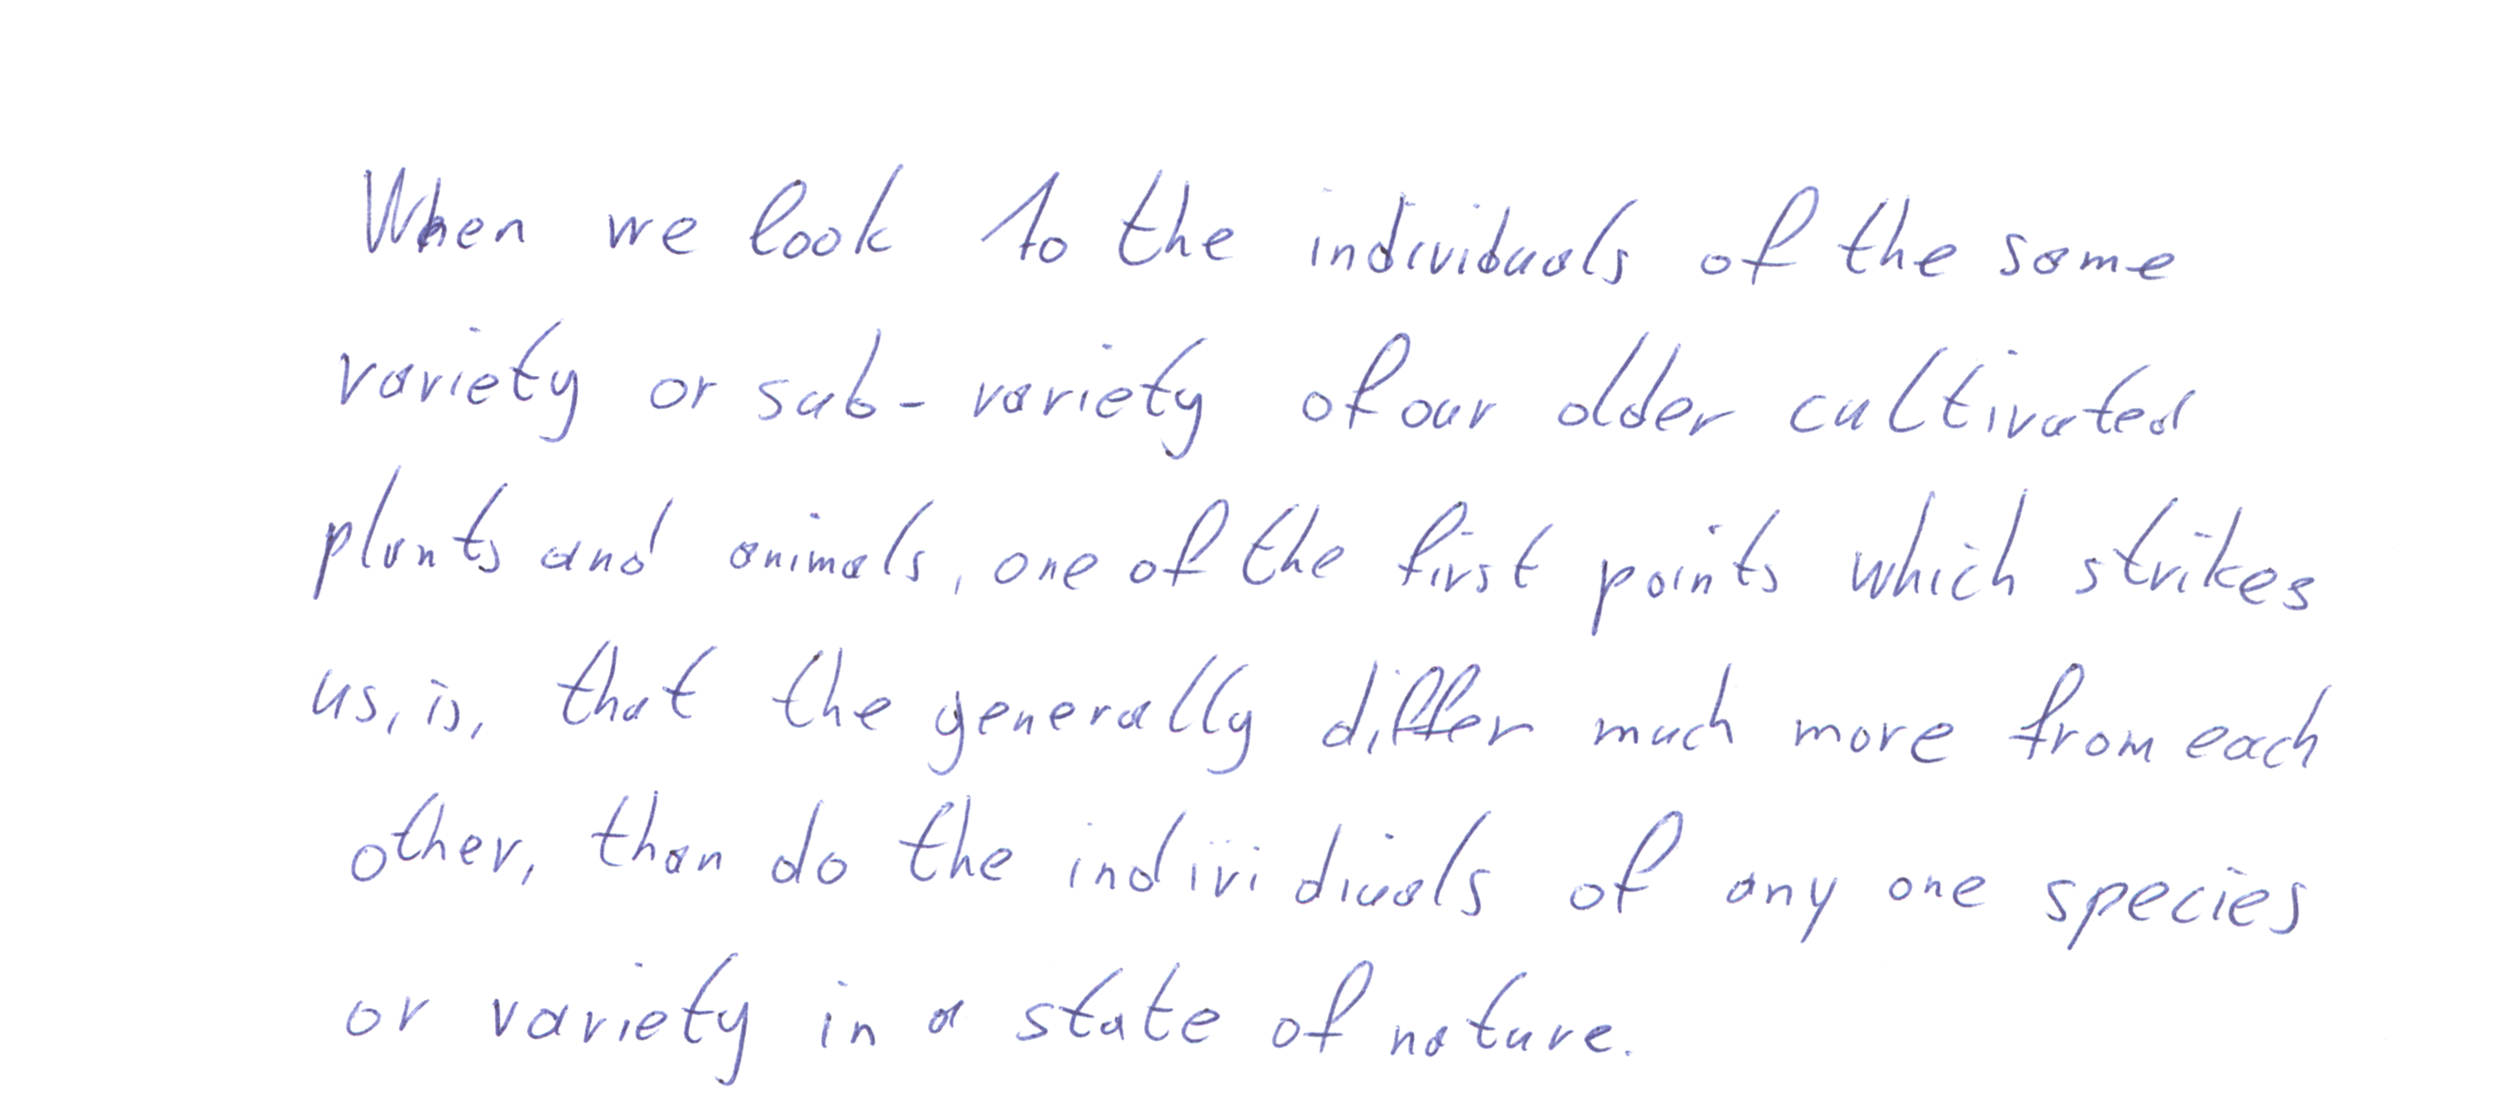 When we look to the individuals of the same
variety or sub-variety of our older cultivated
plants and animals, one of the first points which strikes
us, is, that the generally differ much more from each
other, than do the individuals of any one species
or variety in a state of nature.